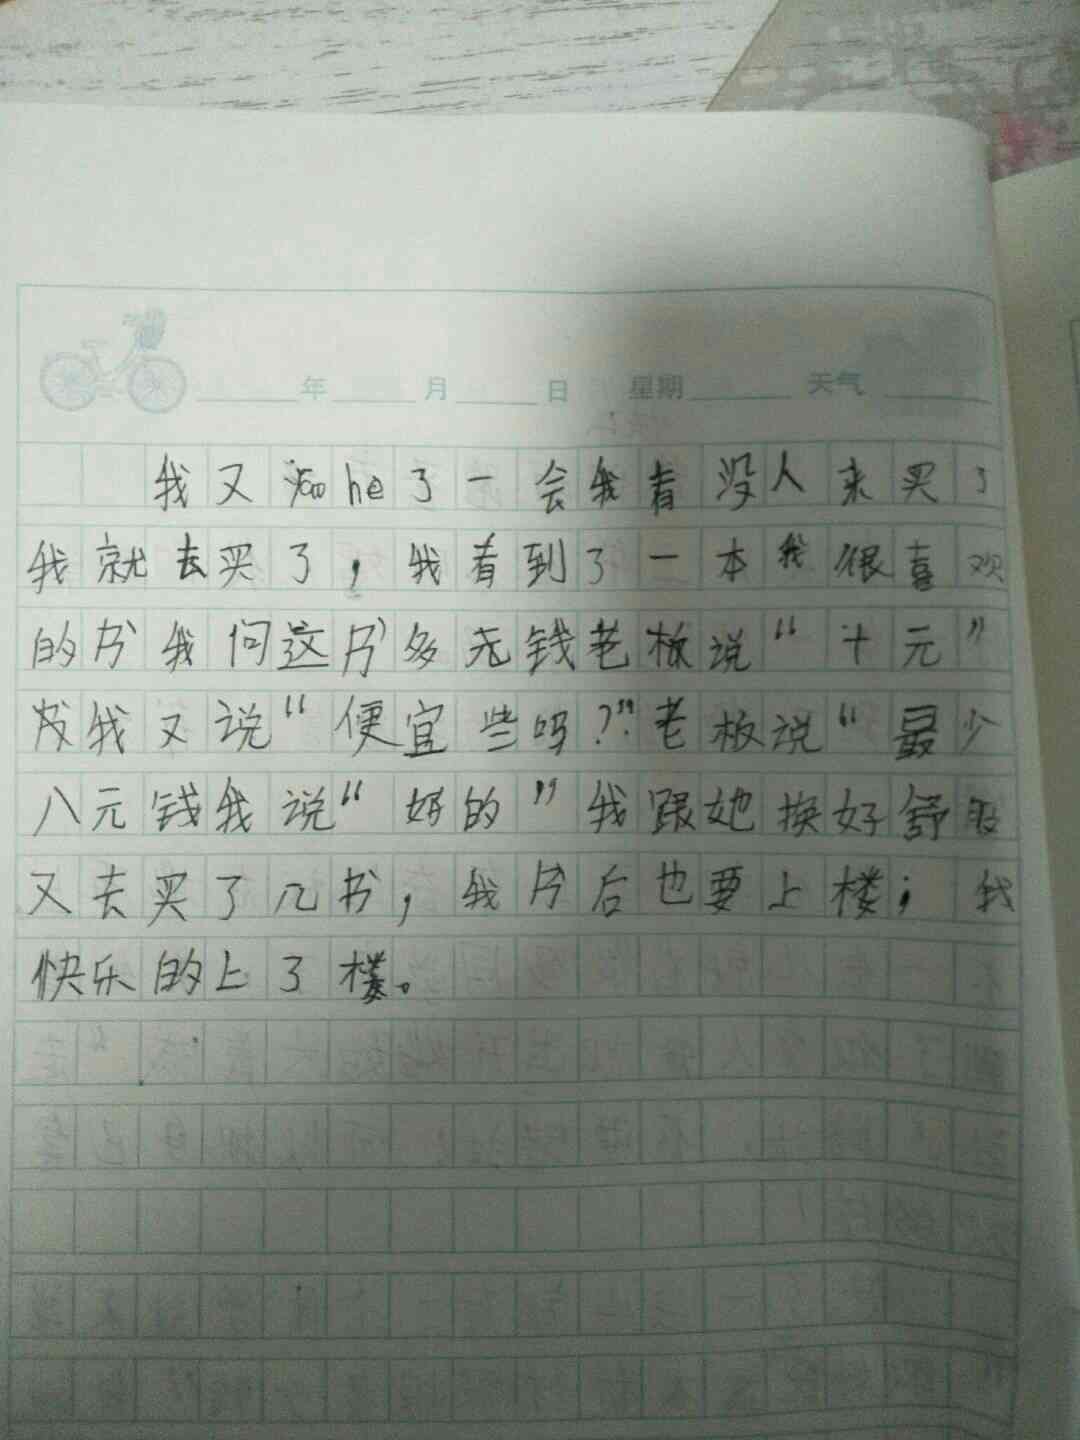 年 月 日 星期 天气
我又 he了一会我看没人来买了
我就去买了，我看到了一本我很喜欢
的书我问这书多无钱老板说“十元”
我又说“便宜些吗？”老板说“最少
八元钱我说“好的”我跟她换好舒服
又去买了几书，我片后也要上楼；我
快乐的上了楼。